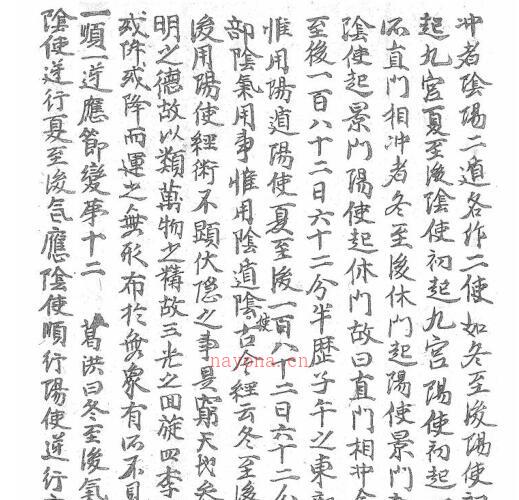 冲者陰陽二道各作二使如冬至後陽使
起九宮夏至後陰使初起九宮陽使初起
不直門相冲者冬至後休門起陽使景門
陰使起景門陽使起休門故曰直門相冲
至後一百八十二日六十二分半歷子午之東
惟用陽道陽使夏至後一百八十二日六十二分
部陰氣用事惟用陰道陰使古今經云冬至後
後用陽使經術不顯伏隱之事是窮天地
明之德故以類萬物之精故三光之回旋四季
或阼或降而運之無形布於無象有不不見
一順一逆應節變事十二 葛洪曰冬至後氣
陰使逆行夏至後氣應陰使順行陽使逆行
nayona.cn